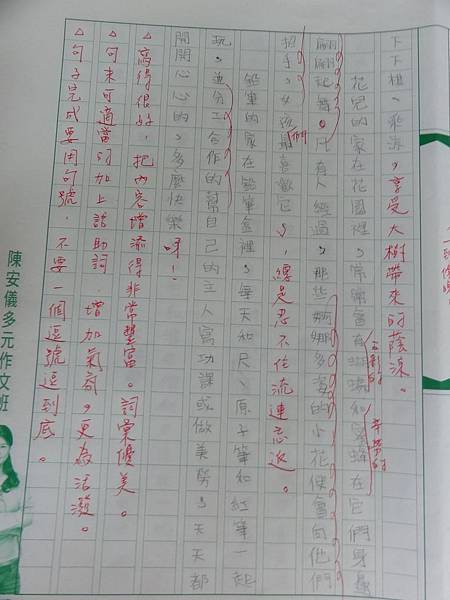 下下棋、乘涼，享受大樹帶來的蔭涼。
花兒的家在花園裡，常常會有蝴蝶和蜜蜂在它們身邊
五彩的
辛勞的
翩翩起舞。只有人經過，那些婀娜多姿的小花便會向他們
招手，女孩們最喜歡它，總是忍不住流連忘返。
鉛筆的家在鉛筆盒裡，每天和尺、原子筆和紅筆一起
玩，並分工合作的幫自己的主人寫功課或做美勞，天天都
開開心心的，多麼快樂呀！
△寫得很好，把內容增添得非常豐富。詞彙優美。
△句末可適當的加上語助詞，增加氣氛，更為活潑。
△句子完成要用句號，不要一個逗號逗到底。
陳安儀多元作文班